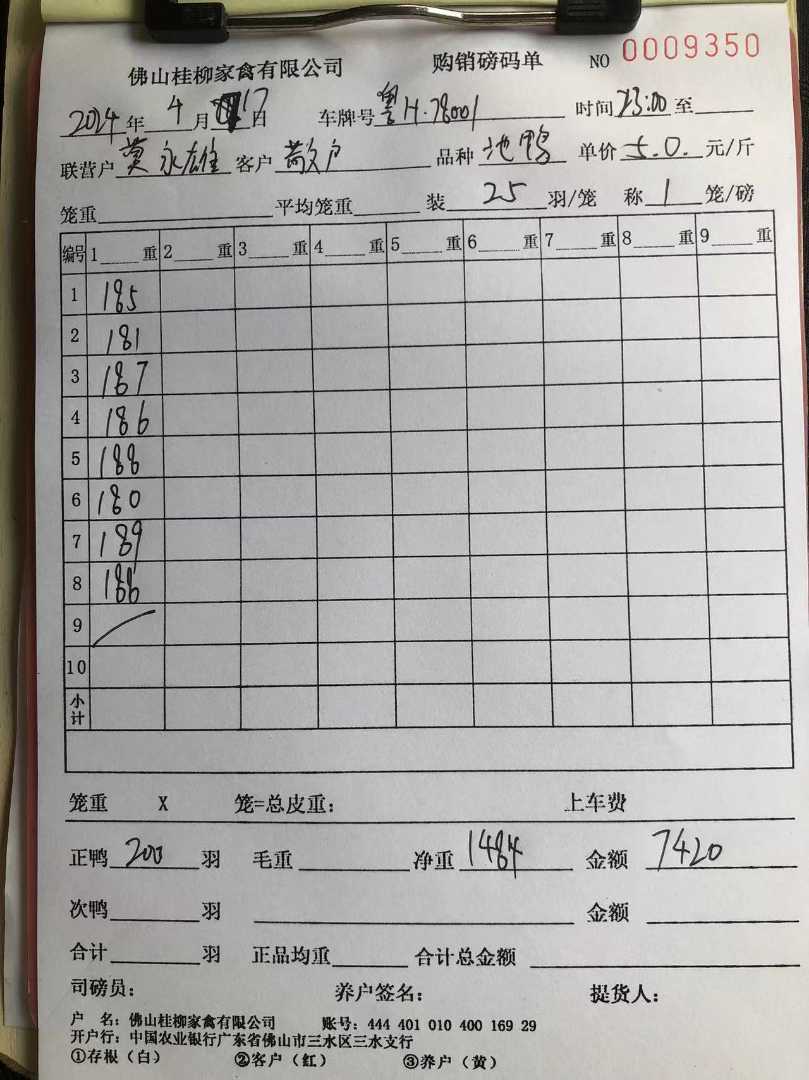 佛山桂柳家禽有限公司 购销磅码单 NO 0009350
2024年 4 月 17 日 车牌号 粤H.78001 时间 23:00 至
联营户 莫永雄 客户 散户 品种 池鸭 单价 5.0. 元/斤
笼重 平均笼重 装 25 羽/笼 称 1 笼/磅
编号 1 重 2 重 3 重 4 重 5 重 6 重 7 重 8 重 9 重
1 185
2 181
3 187
4 186
5 188
6 180
7 189
8 188
9
10
小计
笼重 X 笼=总皮重: 上车费
正鸭 200 羽 毛重 净重 1484 金额 7420
次鸭 羽 金额
合计 羽 正品均重 合计总金额
司磅员: 养户签名: 提货人:
户 名: 佛山桂柳家禽有限公司 账号: 444 401 010 400 169 29
开户行: 中国农业银行广东省佛山市三水区三水支行
①存根(白) ②客户(红) ③养户(黄)